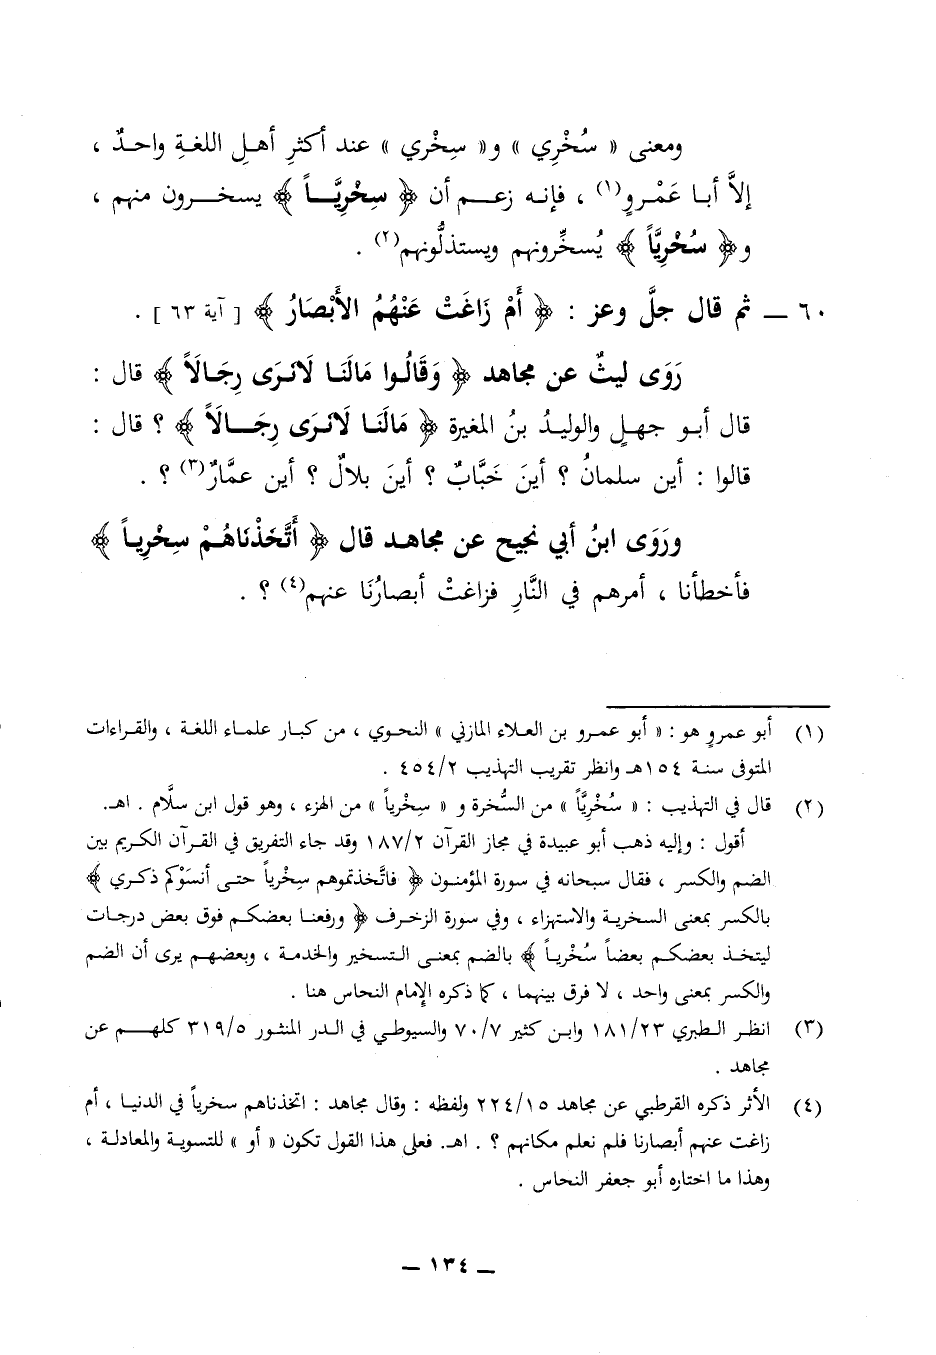 ومعنى « سُخْرِي » و« سِخْرِي » عند أكثرِ أهلِ اللغةِ واحدٌ ،
إلاَّ أبا عَمْروٍ(١) ، فإنه زعم أن ﴿ سِخْرِيَّاً ﴾ يسخرون منهم ،
و﴿ سُخْرِيَّاً ﴾ يُسخِّرونهم ويستذلُّونهم(٢) .
٦٠ ــ ثم قال جلَّ وعز : ﴿ أَمْ زَاغَتْ عَنْهُمُ الأَبْصَارُ ﴾ [ آية ٦٣ ] .
رَوَى ليثٌ عن مجاهد ﴿ وَقَالُوا مَالَنَا لَانَرَى رِجَالَاً ﴾ قال :
قال أبو جهلٍ والوليدُ بنُ المغيرة ﴿ مَالَنَا لَانَرَى رِجَالَاً ﴾ ؟ قال :
قالوا : أين سلمانُ ؟ أينَ خَبَّابٌ ؟ أينَ بلالٌ ؟ أين عمَّارٌ(٣) ؟ .
ورَوَى ابنُ أبي نجيح عن مجاهد قال ﴿ أَتَّخَذْنَاهُمْ سِخْرِياً ﴾
فأخطأنا ، أمرهم في النَّارِ فزاغتْ أبصارُنَا عنهم(٤) ؟ .
(١) أبو عمروٍ هو : « أبو عمرو بن العلاء المازني » النحوي ، من كبار علماء اللغة ، والقراءات
المتوفى سنة ١٥٤هـ وانظر تقريب التهذيب ٤٥٤/٢ .
(٢) قال في التهذيب : « سُخْرِيَّاً » من السُّخرة و « سِخْرياً » من الهزء ، وهو قول ابن سلَّام . اهـ.
أقول : وإليه ذهب أبو عبيدة في مجاز القرآن ١٨٧/٢ وقد جاء التفريق في القرآن الكريم بين
الضم والكسر ، فقال سبحانه في سورة المؤمنون ﴿ فاتَّخذتموهم سِخْرياً حتى أنسَوْكم ذكري ﴾
بالكسر بمعنى السخرية والاستهزاء ، وفي سورة الزخرف ﴿ ورفعنا بعضكم فوق بعض درجات
ليتخذ بعضكم بعضاً سُخْرياً ﴾ بالضم بمعنى التسخير والخدمة ، وبعضهم يرى أن الضم
والكسر بمعنى واحد ، لا فرق بينهما ، كما ذكره الإمام النحاس هنا .
(٣) انظر الطبري ١٨١/٢٣ وابن كثير ٧٠/٧ والسيوطي في الدر المنثور ٣١٩/٥ كلهم عن
مجاهد .
(٤) الأثر ذكره القرطبي عن مجاهد ٢٢٤/١٥ ولفظه : وقال مجاهد : اتخذناهم سخرياً في الدنيا ، أم
زاغت عنهم أبصارنا فلم نعلم مكانهم ؟ . اهـ. فعلى هذا القول تكون « أو » للتسوية والمعادلة ،
وهذا ما اختاره أبو جعفر النحاس .
ــ ١٣٤ ــ